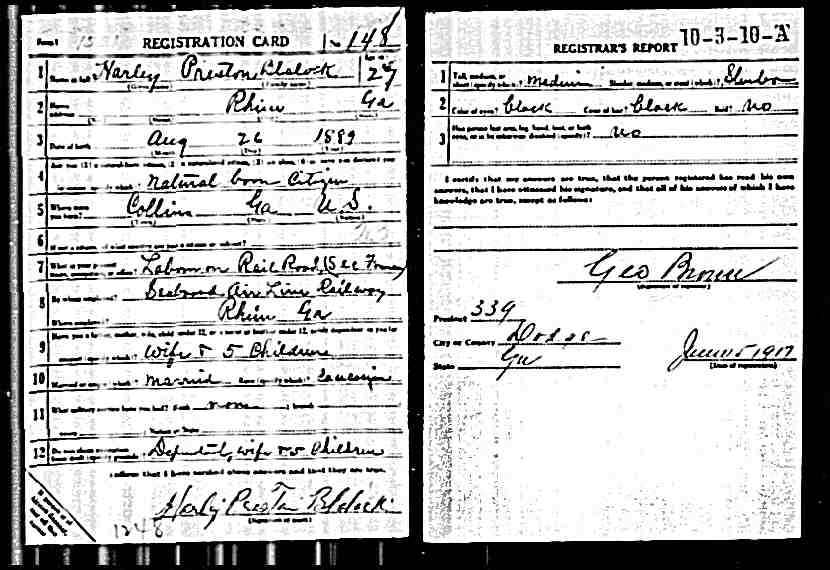 Form 1
REGISTRATION CARD No 148
1 Name in full Harley Preston Blalock Age in yrs 27
(Given name) (Family name)
2 Home address Rhine Ga
3 Date of birth Aug 26 1889
(Month) (Day) (Year)
4
Natural born Citizen
5 Where were you born? Collins Ga U.S.
(Town) (State) (Nation)
6 If not a citizen, of what country are you a citizen or subject?
7 Labor on Rail Road (Sec
8 By whom employed? Seaboard Air Line Railway
Where employed? Rhine Ga
9
Wife & 5 Children
10 Married or single (which)? Married Race (specify which)? Caucasian
11 What military service have you had? Rank none branch
years Nation or State
12 Do you claim exemption from draft (specify grounds)? Wife & 5 Children
I affirm that I have verified above answers and that they are true.
Harly Preston Blalock
(Signature or mark)
1248
REGISTRAR'S REPORT 10-3-10-A
1 Tall, medium, or short (specify which)? Medium Slender, medium, or stout (which)? Slender
2 Color of eyes? black Color of hair? black Bald? No
3 Has person lost arm, leg, hand, foot, or both eyes, or is he otherwise disabled (specify)? No
I certify that my answers are true, that the person registered has read his own
answers, that I have witnessed his signature, and that all of his answers of which I have
knowledge are true, except as follows:
Geo Brown
(Signature of registrar)
Precinct 339
City or County Dodge
State Ga June 5 1917
(Date of registration)